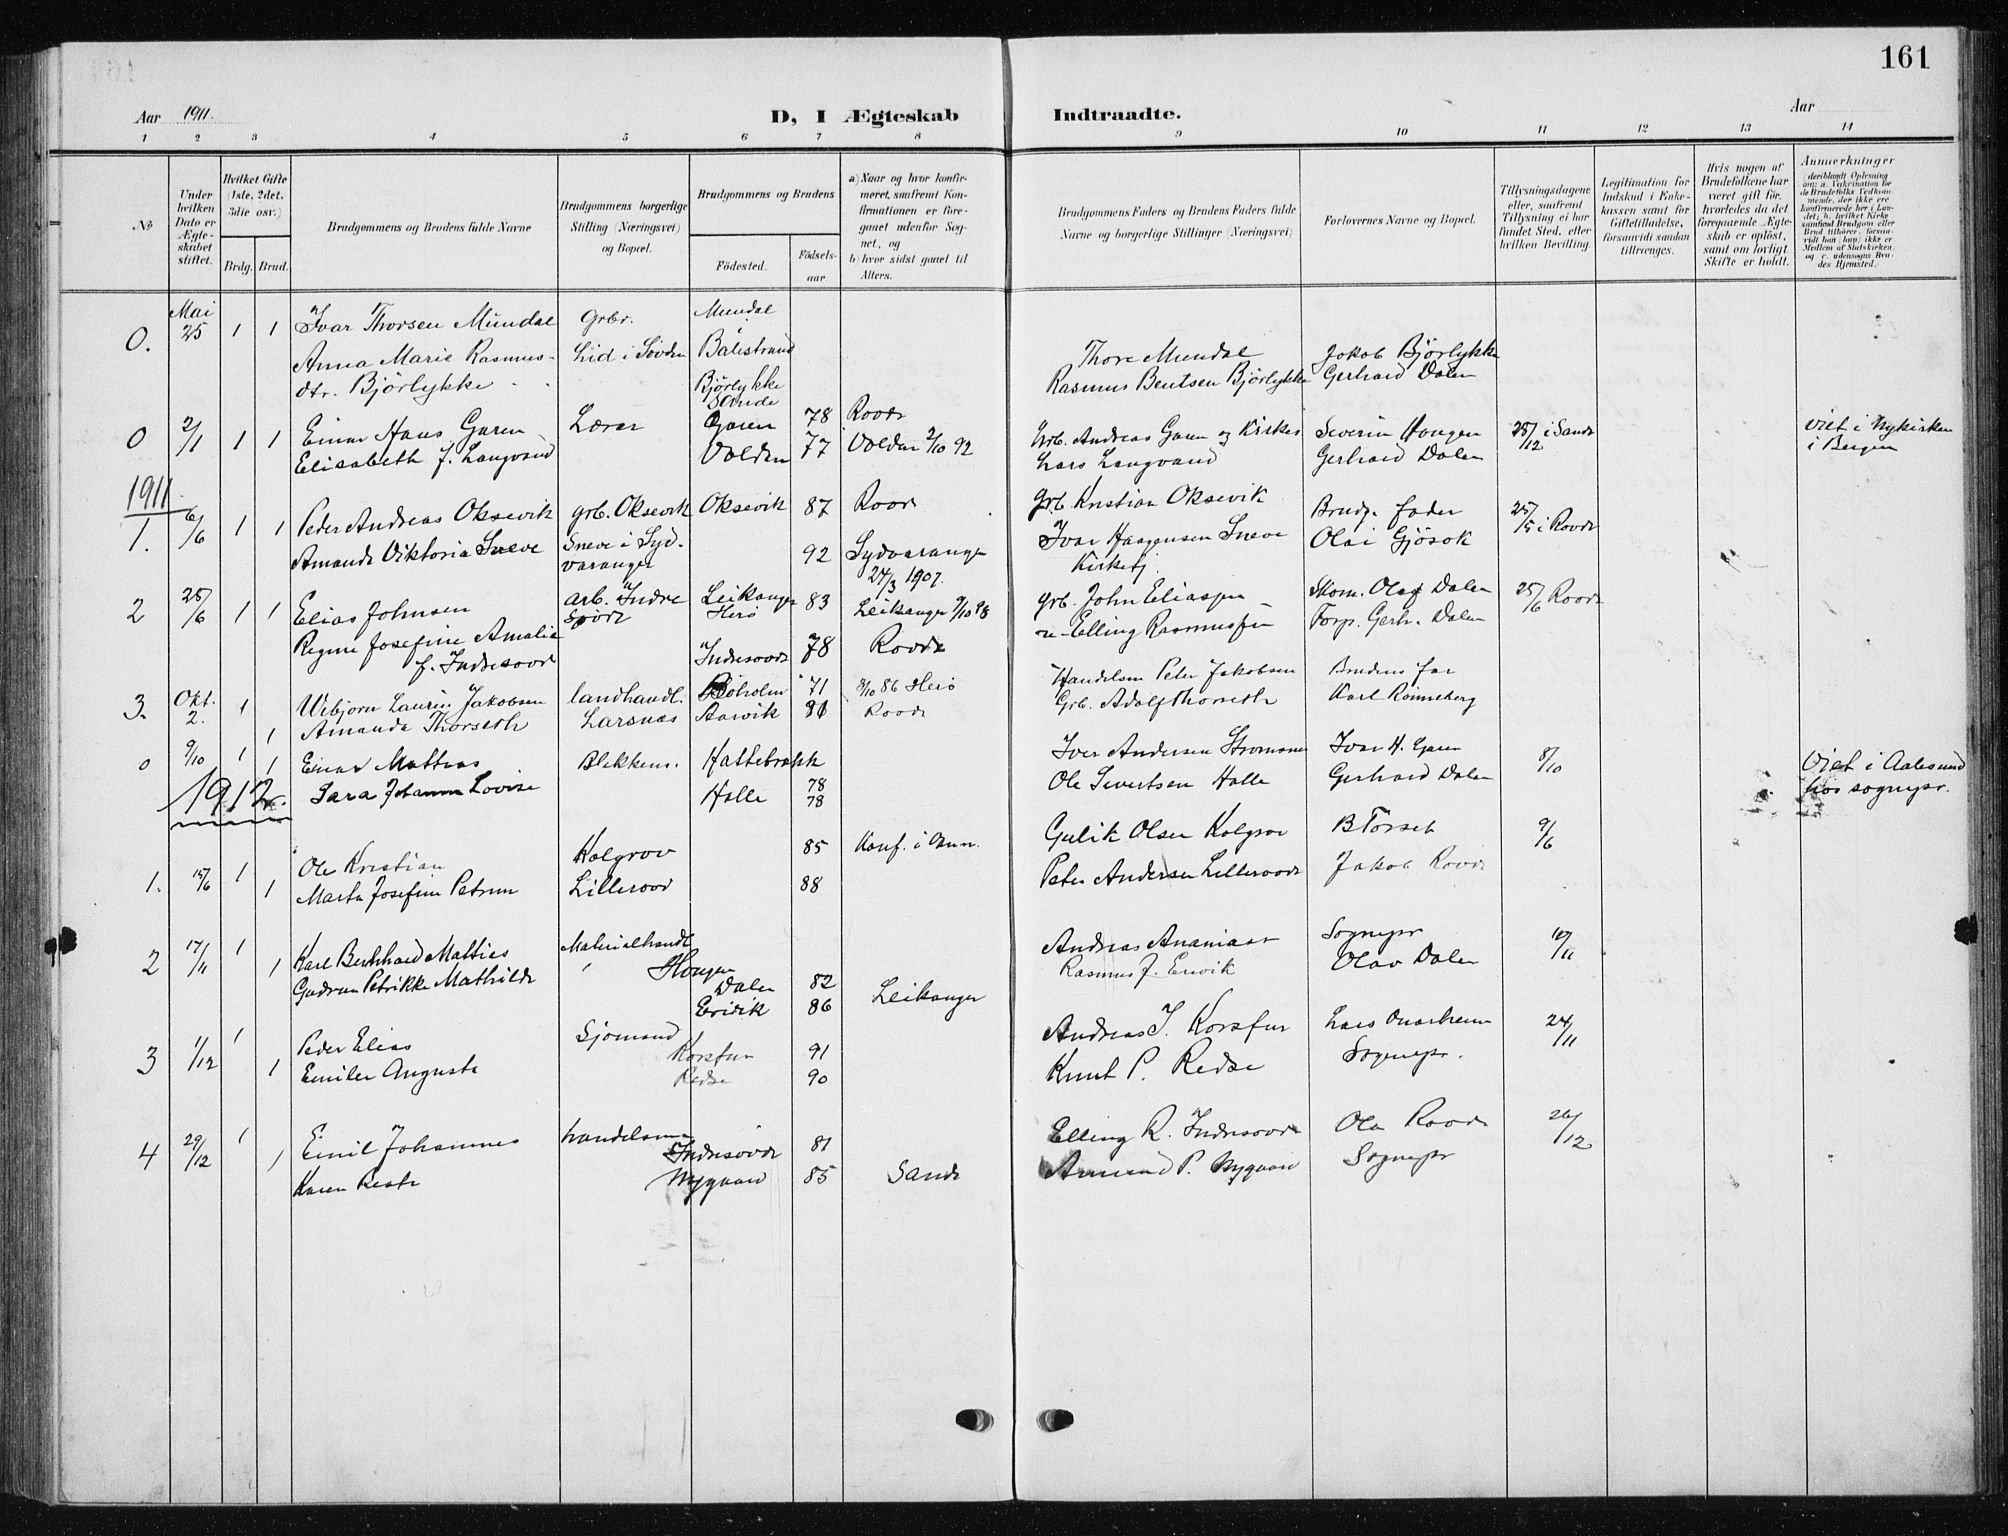 161
Aar 1911.
D, I Ægteskab Indtraadte.
Aar
1 2 3 4 5 6 7 8 9 10 11 12 13 14
No
Under hvilken Dato er Ægteskabet stiftet.
Hvilket Gifte (1ste, 2det, 3die osv.)
Brdg. Brud.
Brudgommens og Brudens fulde Navne
Brudgommens borgerlige Stilling (Næringsvei) og Bopæl.
Brudgommens og Brudens
Fødested.
Fødselsaar.
a) Naar og hvor konfirmeret, saafremt Konfirmationen er foregaaet udenfor Sognet, og
b) hvor sidst gaaet til Alters.
Brudgommens Faders og Brudens Faders fulde Navne og borgerlige Stillinger (Næringsvei)
Forlovernes Navne og Bopæl.
Tillysningsdagene eller, saafremt Tillysning ei har fundet Sted, efter hvilken Bevilling.
Legitimation for Indskud i Enkekassen samt for Giftetilladelse, forsaavidt saadan tiltrænges.
Hvis nogen af Brudefolkene har været gift før, hvorledes da det foregaaende Ægteskab er opløst, samt om lovligt Skifte er holdt.
Anmerkninger
deriblandt Oplysning om: a. Vakcination for de Brudefolks Vedkommende, der ikke ere konfirmerede her i Landet; b. hvilket Kirkesamfund Brudgom eller Brud tilhører, forsaavidt han (hun) ikke er Medlem af Statskirken, og c. udensogns Brudes Hjemsted.
0. Mai 25 1 1 Ivar Thorsen Mundal Grbr. Mundal
Anna Marie Rasmus- Lid i Søvde Balestrand Thore Mundal Jakob Bjørlykke
dtr. Bjørlykke Bjørlykke Sande Rasmus Bentsen Bjørlykke Gerhard Dalen
0 2/1 1 1 Einar Hans Garen Lærer Garen 78 Rovde Grb. Andreas Garen og Kirkes Severin Hougen 25/12 i Sande viet i Nykirken
Elisabeth J. Langvand Volden 77 Volden 2/10 92 Lars Langvand Gerhard Dalen i Bergen
1911
1. 6/6 1 1 Peder Andreas Oksevik grb. Oksevik Oksevik 87 Rovde grb Kristian Oksevik Brudg. fader 25/5 i Rovde
Amanda Viktoria Sneve Sneve i Syd- varanger 92 Sydvaranger 24/3 1907. Ivar Haagensen Sneve Kirketj. Olai Gjøsok
2 25/6 1 1 Elias Johnsen arb. Indre Søvde Leikanger Herø 83 Leikanger 9/10 98 grb. John Eliassen Skom. Olaf Dalen 25/6 Rovde
Regine Josefine Amalie f. Indresovde Indresovde 78 Rovde Elling Rasmussen Forp. Gerh. Dalen
3. Okt. 2. 1 Vebjørn Laurin Jakobsen landhandl. 71 3/10 86 Herø Handelsm Peter Jakobsen Brudens far
1 Amanda Thorseth Larsnæs Aarvik Rovde Grb. Adolf Thorseth Karl Rønneberg
0 9/10 1 1 Einar Mattias Blikkens. Hattebrækk 78 Iver Andersen Ivar H. Garen 8/10 Viet i Aalesund
1912. Sara Johanne Lovise Halle 78 Ole Sivertsen Halle Gerhard Dalen hos sognepr.
1. 15/6 1 Ole Kristian Kolgrov 85 Konf. i Gulik Olsen Kolgrov B Torset 9/6
1 Marta Josefine Petrine Lillerovd 88 Peter Andersen Lillerovde Jakob Rovde
2 17/11 1 Karl Bernhard Mattias Materialhandl. Andreas Ananiass Sognepr 10/11
1 Gudrun Petrikke Mathilde Hougen Dalen 82 Rasmus J. Ervik Olav Dalen
Ervik 86 Leikanger
3 1/12 1 Peder Elias Sjømand Korsfur 91 Andreas I. Korsfur Lars Ovarheim 24/11
1 Emilie Auguste Redse 90 Knut P. Redse Sognepr.
4 29/12 1 Emil Johannes handelsm Indresovde 81 Elling R. Indresovde Ola Rovde 26/12
1 Karen Beate Nygaard 85 Sande Amund P. Nygaard Sognepr